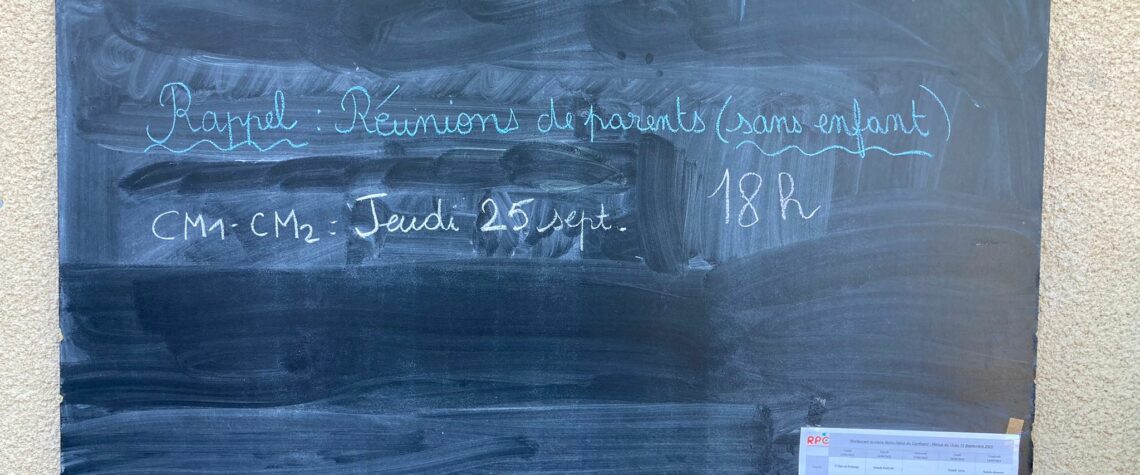 Rappel : Réunions de parents (sans enfant)
18h
CM1-CM2 : Jeudi 25 sept.
RPC